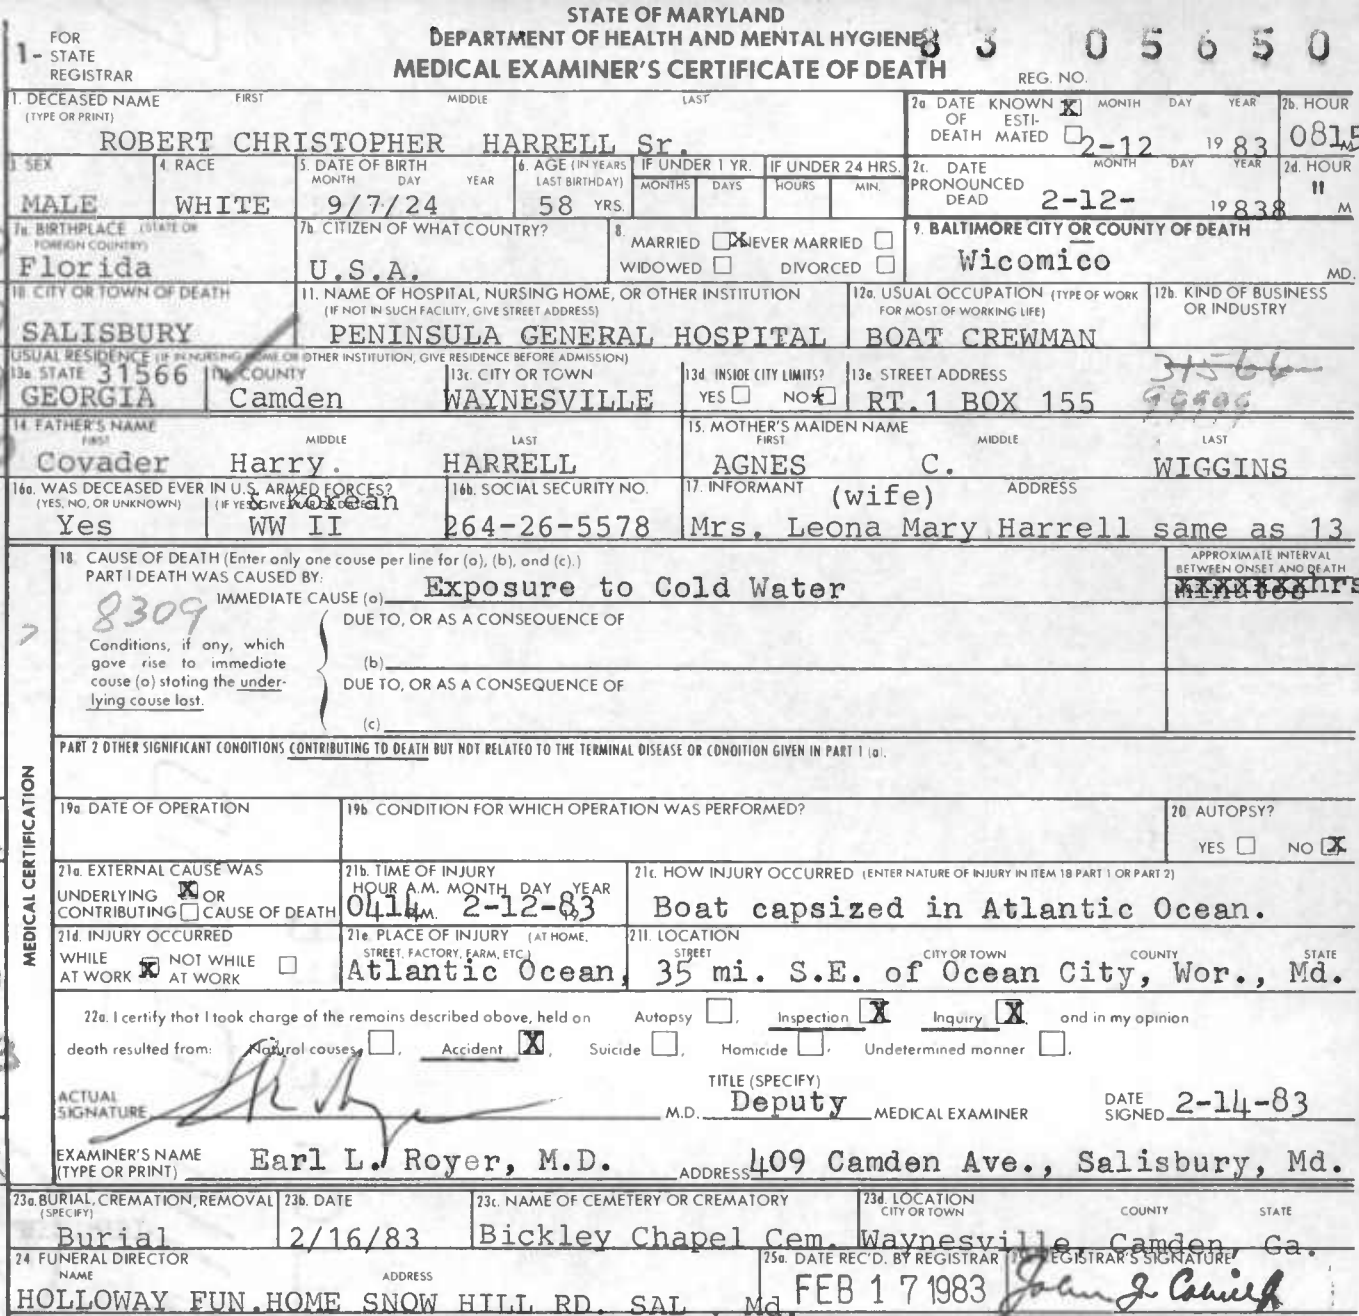 STATE OF MARYLAND
DEPARTMENT OF HEALTH AND MENTAL HYGIENE
MEDICAL EXAMINER'S CERTIFICATE OF DEATH
1- FOR STATE REGISTRAR
83 05650
REG. NO.
1. DECEASED NAME (TYPE OR PRINT) FIRST MIDDLE LAST
ROBERT CHRISTOPHER HARRELL Sr.
2a DATE OF DEATH KNOWN X ESTIMATED MONTH DAY YEAR
2-12 19 83
2b. HOUR
0815 M
3 SEX
MALE
4 RACE
WHITE
5. DATE OF BIRTH MONTH DAY YEAR
9/7/24
6. AGE (IN YEARS LAST BIRTHDAY)
58 YRS.
IF UNDER 1 YR. MONTHS DAYS
IF UNDER 24 HRS. HOURS MIN.
2c. DATE PRONOUNCED DEAD MONTH DAY YEAR
2-12- 19 838
2d. HOUR
" M
7a. BIRTHPLACE (STATE OR FOREIGN COUNTRY)
Florida
7b. CITIZEN OF WHAT COUNTRY?
U.S.A.
8. MARRIED X NEVER MARRIED
WIDOWED DIVORCED
9. BALTIMORE CITY OR COUNTY OF DEATH
Wicomico MD.
10. CITY OR TOWN OF DEATH
SALISBURY
11. NAME OF HOSPITAL, NURSING HOME, OR OTHER INSTITUTION
(IF NOT IN SUCH FACILITY, GIVE STREET ADDRESS)
PENINSULA GENERAL HOSPITAL
12a. USUAL OCCUPATION (TYPE OF WORK FOR MOST OF WORKING LIFE)
BOAT CREWMAN
12b. KIND OF BUSINESS OR INDUSTRY
USUAL RESIDENCE (IF IN NURSING HOME OR OTHER INSTITUTION, GIVE RESIDENCE BEFORE ADMISSION)
13a STATE 31566
GEORGIA
13b COUNTY
Camden
13c. CITY OR TOWN
WAYNESVILLE
13d. INSIDE CITY LIMITS?
YES NO X
13e STREET ADDRESS
RT.1 BOX 155
31566
99999
14. FATHER'S NAME FIRST MIDDLE LAST
Covader Harry. HARRELL
15. MOTHER'S MAIDEN NAME FIRST MIDDLE LAST
AGNES C. WIGGINS
16a. WAS DECEASED EVER IN U.S. ARMED FORCES?
(YES, NO, OR UNKNOWN) (IF YES, GIVE WAR OR DATES)
& Korean
Yes WW II
16b. SOCIAL SECURITY NO.
264-26-5578
17. INFORMANT ADDRESS
(wife)
Mrs. Leona Mary Harrell same as 13
MEDICAL CERTIFICATION
18. CAUSE OF DEATH (Enter only one cause per line for (a), (b), and (c).)
PART I DEATH WAS CAUSED BY:
IMMEDIATE CAUSE (a) Exposure to Cold Water
APPROXIMATE INTERVAL BETWEEN ONSET AND DEATH
hrs
8309
Conditions, if any, which gave rise to immediate cause (a) stating the underlying cause last.
DUE TO, OR AS A CONSEQUENCE OF
(b)
DUE TO, OR AS A CONSEQUENCE OF
(c)
PART 2 OTHER SIGNIFICANT CONDITIONS CONTRIBUTING TO DEATH BUT NOT RELATED TO THE TERMINAL DISEASE OR CONDITION GIVEN IN PART 1 (a).
19a DATE OF OPERATION
19b CONDITION FOR WHICH OPERATION WAS PERFORMED?
20 AUTOPSY?
YES NO X
21a. EXTERNAL CAUSE WAS
UNDERLYING X OR
CONTRIBUTING CAUSE OF DEATH
21b. TIME OF INJURY
HOUR A.M. MONTH DAY YEAR
0414 M. 2-12-83
21c. HOW INJURY OCCURRED (ENTER NATURE OF INJURY IN ITEM 18 PART 1 OR PART 2)
Boat capsized in Atlantic Ocean.
21d. INJURY OCCURRED
WHILE AT WORK X NOT WHILE AT WORK
21e PLACE OF INJURY (AT HOME, STREET, FACTORY, FARM, ETC.)
Atlantic Ocean,
21f. LOCATION STREET CITY OR TOWN COUNTY STATE
35 mi. S.E. of Ocean City, Wor., Md.
22a. I certify that I took charge of the remains described above, held on Autopsy , Inspection X Inquiry X, and in my opinion
death resulted from: Natural causes , Accident X, Suicide , Homicide , Undetermined manner .
ACTUAL SIGNATURE M.D.
TITLE (SPECIFY)
Deputy MEDICAL EXAMINER
DATE SIGNED 2-14-83
EXAMINER'S NAME (TYPE OR PRINT) Earl L. Royer, M.D.
ADDRESS 409 Camden Ave., Salisbury, Md.
23a. BURIAL, CREMATION, REMOVAL (SPECIFY)
Burial
23b. DATE
2/16/83
23c. NAME OF CEMETERY OR CREMATORY
Bickley Chapel Cem.
23d. LOCATION CITY OR TOWN COUNTY STATE
Waynesville, Camden, Ga.
24 FUNERAL DIRECTOR
NAME ADDRESS
HOLLOWAY FUN.HOME SNOW HILL RD. SAL , Md.
25a. DATE REC'D. BY REGISTRAR
FEB 17 1983
REGISTRAR'S SIGNATURE
John J.